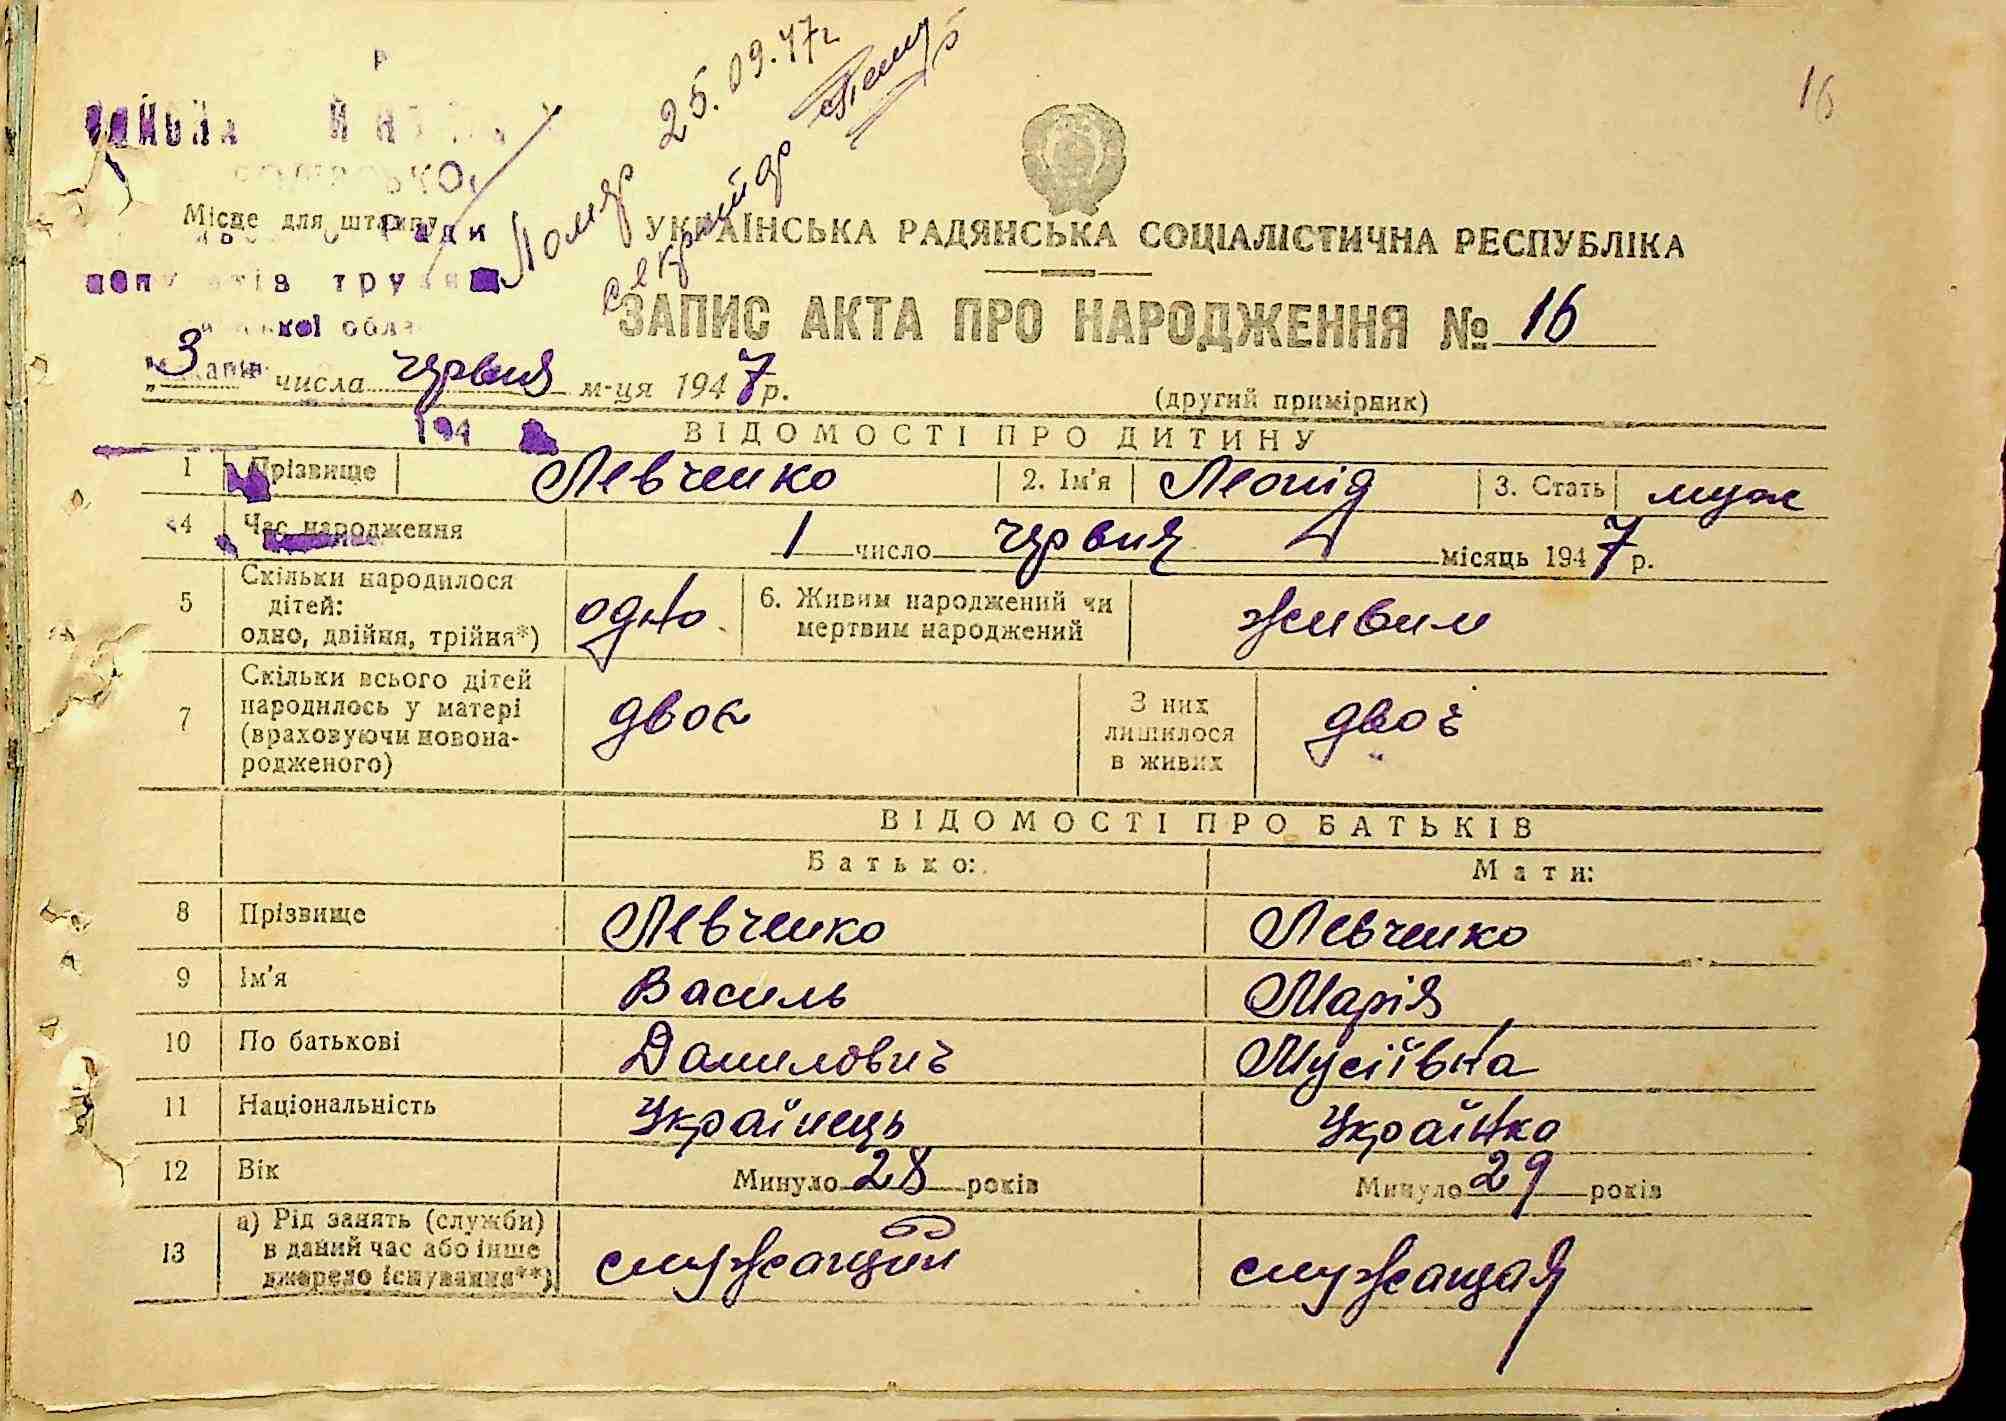 16
Помер 25.09.47г
УКРАЇНСЬКА РАДЯНСЬКА СОЦІАЛІСТИЧНА РЕСПУБЛІКА
Місце для штампу
Ради
ЗАПИС АКТА ПРО НАРОДЖЕННЯ № 16
„3 числа червня м-ця 1947 р.
(другий примірник)
194
ВІДОМОСТІ ПРО ДИТИНУ
1 Прізвище Левченко 2. Ім'я Леонід 3. Стать муж
4 Час народження 1 число червня місяць 1947 р.
5 Скільки народилося дітей: одно, двійня, трійня*) одно 6. Живим народжений чи мертвим народжений живим
7 Скільки всього дітей народилось у матері (враховуючи новонародженого) двоє З них лишилося в живих двоє
ВІДОМОСТІ ПРО БАТЬКІВ
Батько: Мати:
8 Прізвище Левченко Левченко
9 Ім'я Василь Марія
10 По батькові Данилович Мусіївна
11 Національність Українець Українка
12 Вік Минуло 28 років Минуло 29 років
13 а) Рід занять (служби) в даний час або інше джерело існування**) служащий служащая